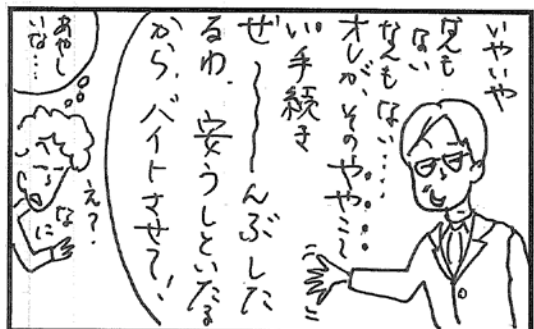 いやいや
なんも
ない
なんもない…
オレが、そのややこ〜
い手続き
ぜ〜〜んぶした
るわ、安うしといたる
から、バイトさせて！
え？
なに
あやし
いな…